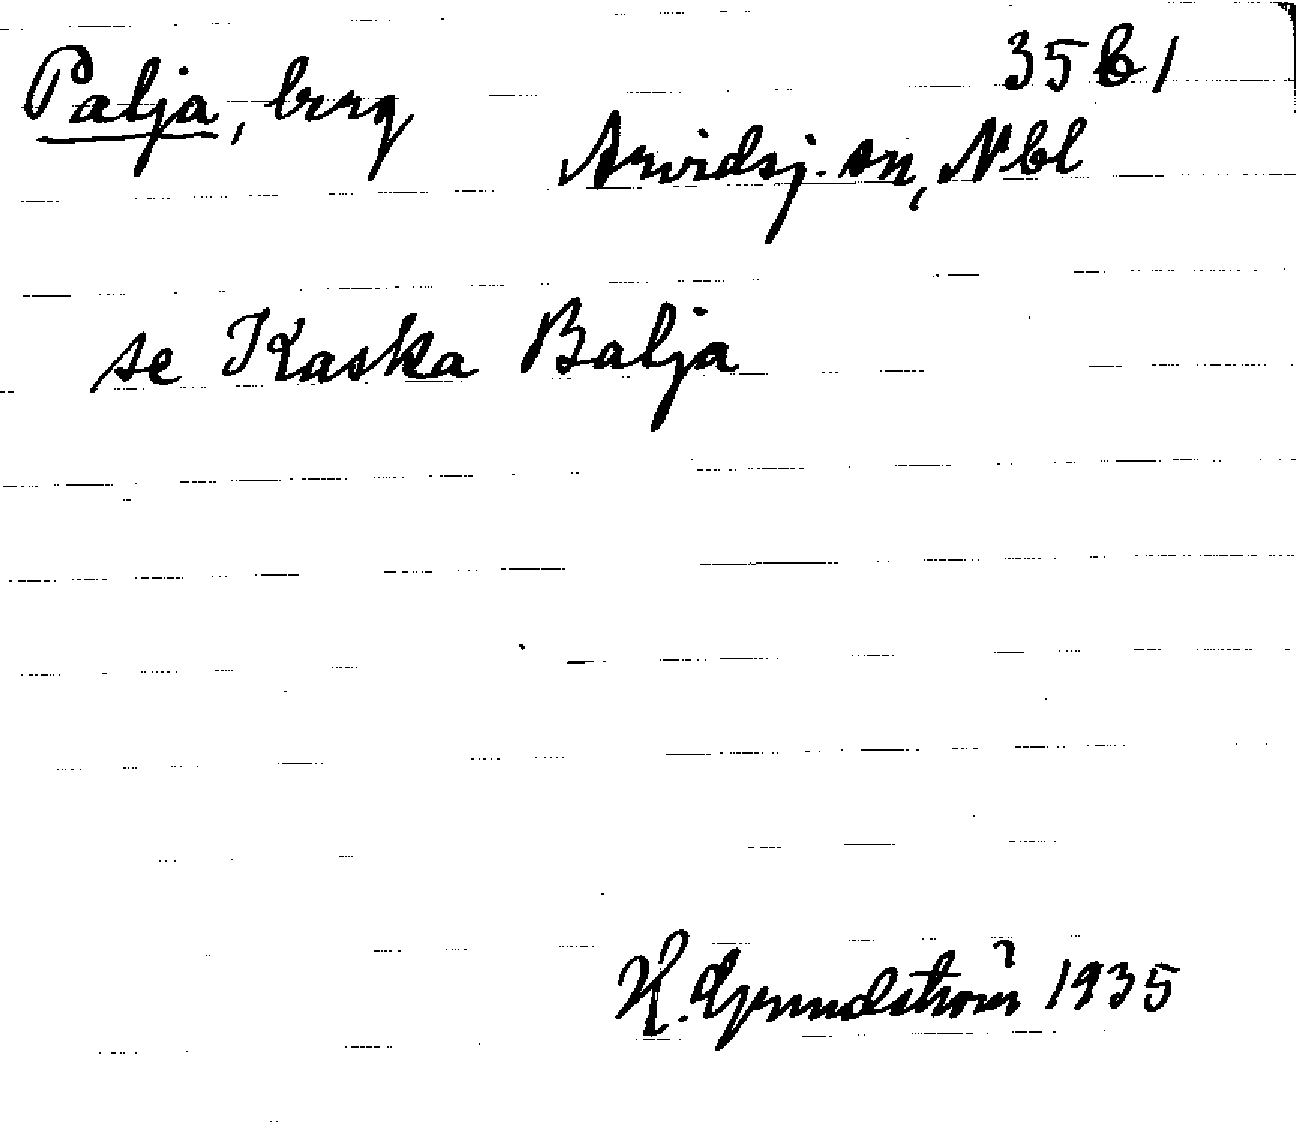 Palja, berg 35b1
Arvidsj. sn, Nbl
se Kaska Balja
H. Grundström 1935